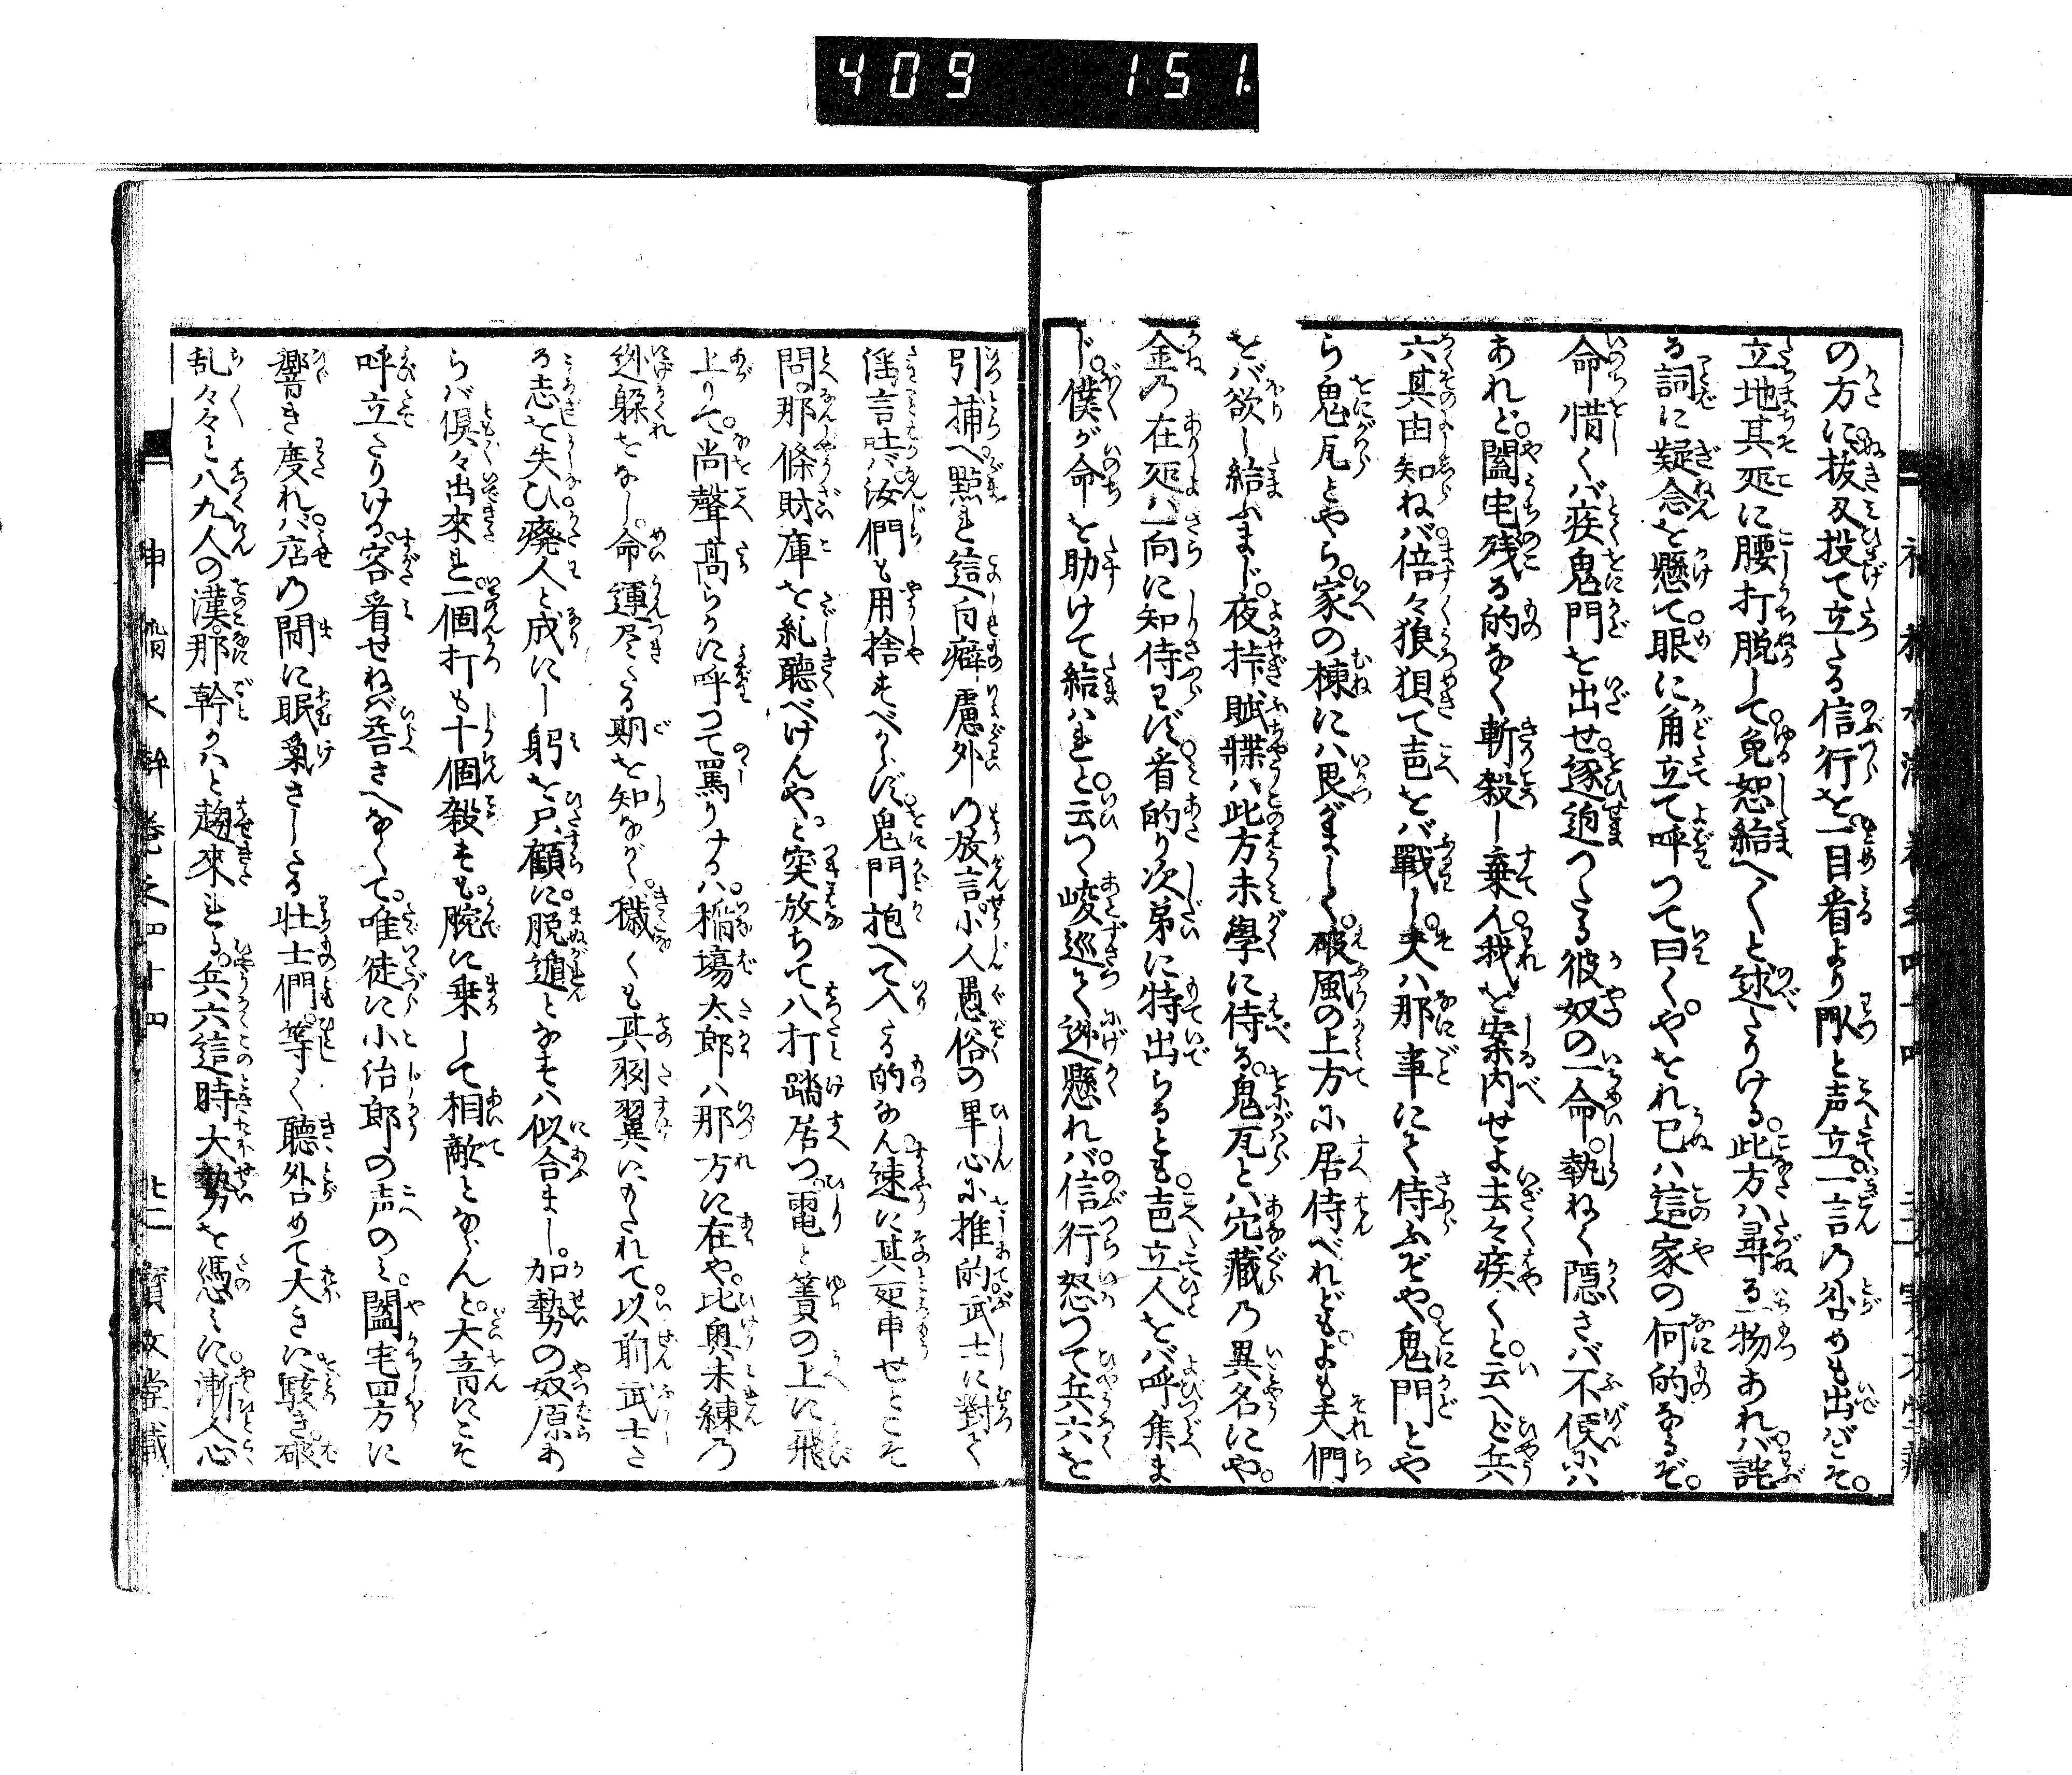 409 151.
の方に抜刄投て立たる信行を一目看より閃と声立一言の咎めも出ばこそ。
立地其処に腰打脱して免恕給へ〱と逑たりける。此方ハ尋る一物あれバ詫
る詞に疑念を懸て。眼に角立て呼つて曰く。やをれ己ハ這家の何的なるぞ。
命惜くバ疾鬼門を出せ。逐迫つたる彼奴の一命。執ねく隠さバ不便ふハ
あれど。闔宅残る的なく斬殺し棄ん。我を案内せよ去々疾くと。云へど兵
六其由知ねバ。倍々狼狽て声をバ戰し。夫ハ那事にて侍ふぞや。鬼門とや
ら鬼瓦とやら。家の棟にハ畏がましく。破風の上方ふ居侍べれども。よも夫們
をバ欲し給ふまじ。夜挊賦牒ハ此方未學に侍る。鬼瓦とハ宍藏の異名にや。
金の在処ハ一向に知侍らず。看的り次第に特出らるとも。声立人をバ呼集ま
じ。僕が命を助けて給ハれと。云つゝ崚巡て迯懸れバ。信行怒つて兵六を
引捕へ。點れ這白癖慮外の放言。小人愚俗の卑心ふ推的。武士に對て
徭言吐バ汝們も用捨すべからず。鬼門抱へて入たる的なん。速に其処申せとこそ
問。那條財庫を糺聽べけんや。と突放ちて八打踏居つ。電と簀の上に飛
上りて。尚聲髙らかに呼つて罵りけるハ。稲塲太郎ハ那方に在や。比興未練の
迯躱をなし。命運尽たる期を知ながら。穢くも其羽翼にかたれて。以前武士た
る志を失ひ。癈人と成にし躬を戸顧に。脱遁となすハ似合まし。加勢の奴原あ
らバ倶々出來れ。一個打も十個殺すも。腕に乗して相敵とならんと。大音にこそ
呼立たりける。容看せねバ吾さへなくて。唯徒に小治郎の声のミ。闔宅四方に
響き度れバ。店の間に眠氣さしたる壮士們。等く聽咎めて大きに駭き。破
乱々々と八九人の漢。那幹かハと趨來れる。兵六這時大勢を慿ミに。漸人心
神稲水滸 卷之四十四
神稲水滸 卷之四十四 廿二 寳文堂藏